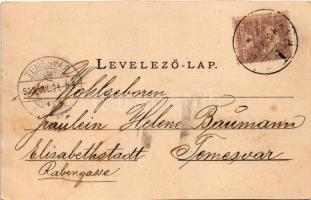 LEVELEZŐ-LAP.
TEMESVÁR
Wohlgeboren
Fräulein Helene Baumann
Elisabethstadt Temesvar
Rabengasse